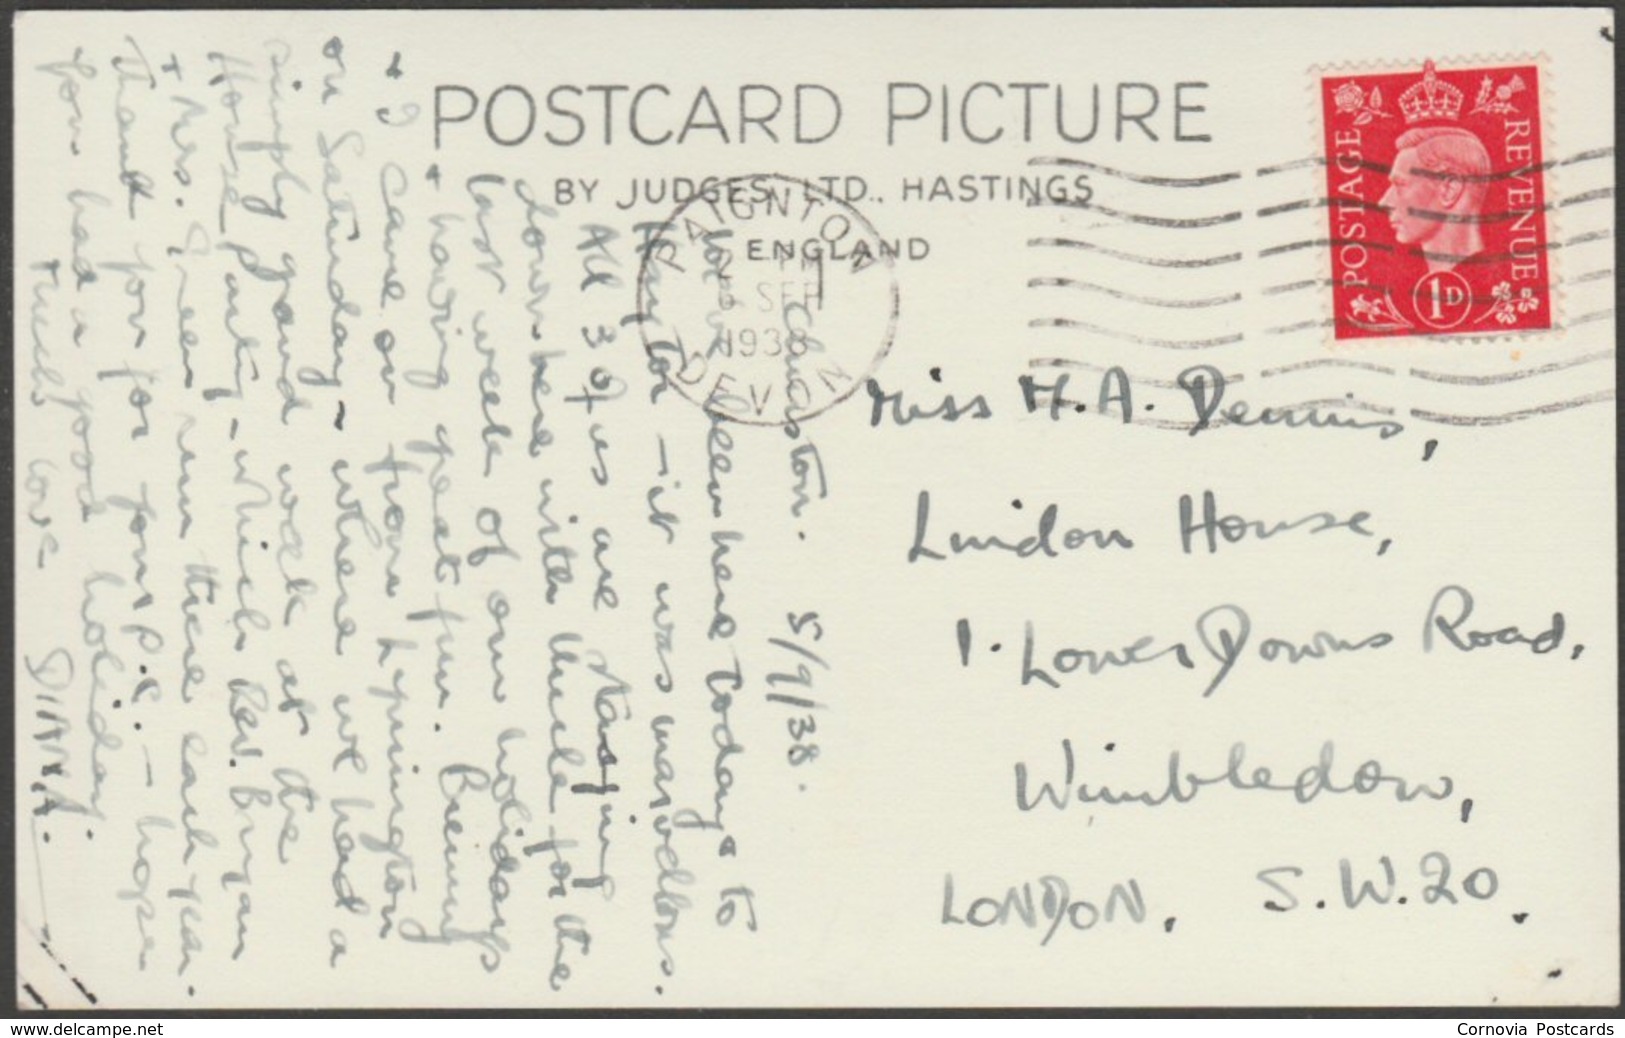 POSTCARD PICTURE
BY JUDGES, LTD., HASTINGS
ENGLAND
POSTAGE REVENUE
1D
PAIGNTON
SEP
1938
DEVON
Miss M. A. Dennis,
Lindon House,
1. Lower Downs Road,
Wimbledon,
LONDON. S.W.20.
Chelston. 5/9/38.
We've been here today & to
Haytor - it was marvellous.
All 3 of us are staying
down here with Uncle for the
last week of our holidays
& having great fun. Binny
& I came on from Lymington
on Saturday - where we had a
simply grand week at the
House party - which Rev. Bryan
& Mrs. Green run there each year.
Thank you for your p.c. - hope
you had a good holiday.
Much love DIANA.
www.delcampe.net
Cornovia Postcards